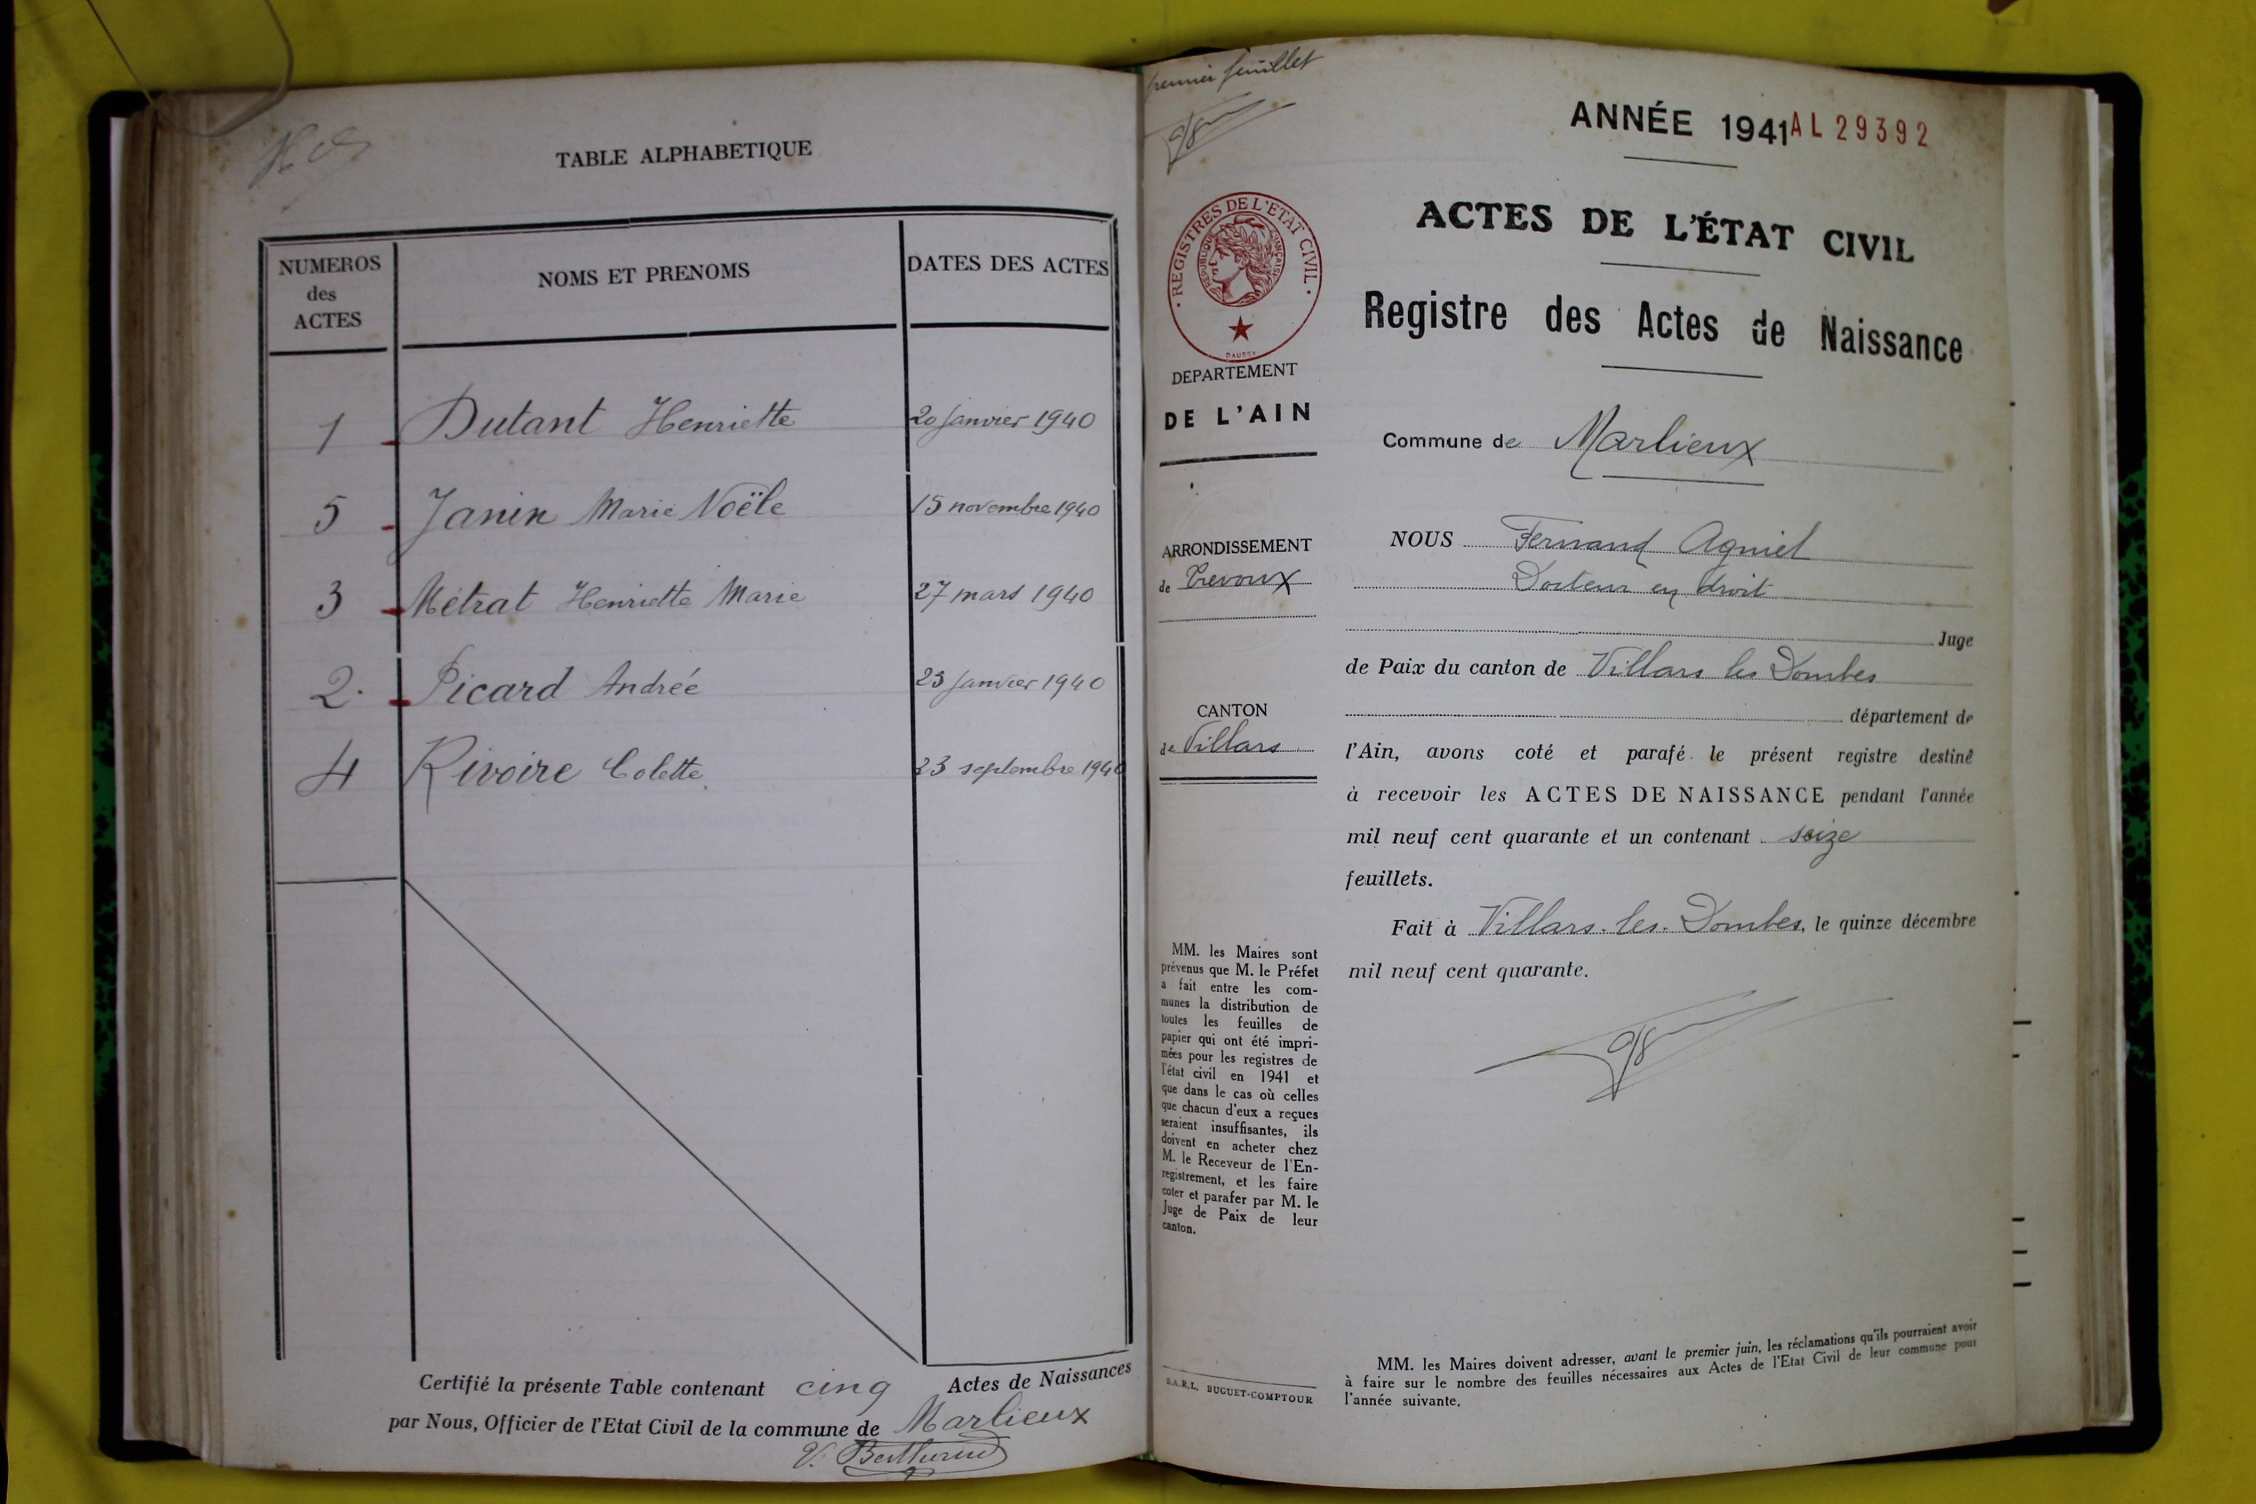 TABLE ALPHABETIQUE
NUMEROS des ACTES NOMS ET PRENOMS DATES DES ACTES
1 Dutant Henriette 20 Janvier 1940
5 Janin Marie Noële 15 novembre 1940
3 Métrat Henriette Marie 27 mars 1940
2. Picard Andrée 23 Janvier 1940
4 Rivoire Colette 23 septembre 1940
Certifié la présente Table contenant cinq Actes de Naissances
par Nous, Officier de l'Etat Civil de la commune de Marlieux
premier feuillet
ANNÉE 1941 AL 29392
REGISTRES DE L'ETAT CIVIL
REPUBLIQUE FRANÇAISE
DEPARTEMENT
DE L'AIN
ARRONDISSEMENT
de Trevoux
CANTON
de Villars
MM. les Maires sont
prévenus que M. le Préfet
a fait entre les com-
munes la distribution de
toutes les feuilles de
papier qui ont été impri-
mées pour les registres de
l'état civil en 1941 et
que dans le cas où celles
que chacun d'eux a reçues
seraient insuffisantes, ils
doivent en acheter chez
M. le Receveur de l'En-
registrement, et les faire
coter et parafer par M. le
Juge de Paix de leur
canton.
S.A.R.L. BUGUET-COMPTOUR
ACTES DE L'ÉTAT CIVIL
Registre des Actes de Naissance
Commune de Marlieux
NOUS Fernand Agniel
Docteur en droit
Juge
de Paix du canton de Villars les Dombes
département de
l'Ain, avons coté et parafé le présent registre destiné
à recevoir les ACTES DE NAISSANCE pendant l'année
mil neuf cent quarante et un contenant seize
feuillets.
Fait à Villars-les-Dombes, le quinze décembre
mil neuf cent quarante.
MM. les Maires doivent adresser, avant le premier juin, les réclamations qu'ils pourraient avoir
à faire sur le nombre des feuilles nécessaires aux Actes de l'Etat Civil de leur commune pour
l'année suivante.